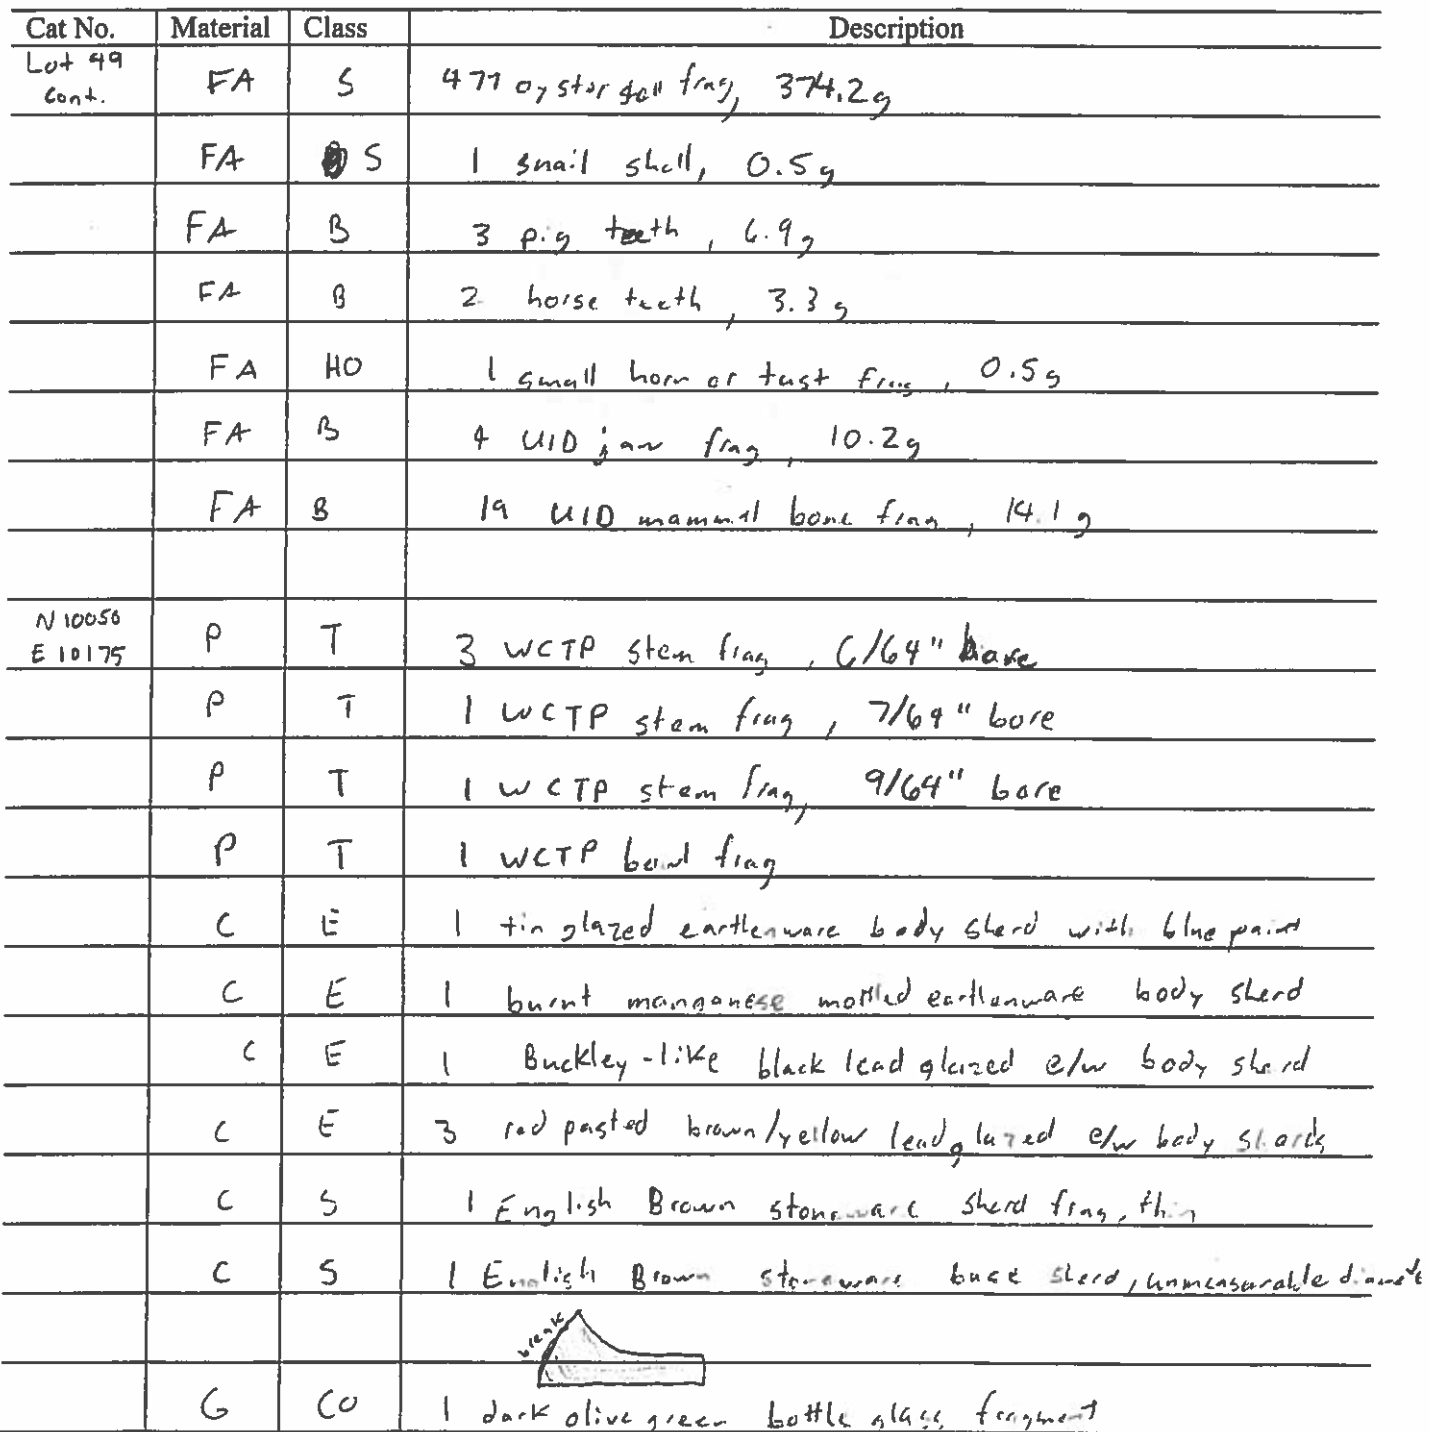 Cat No. Material Class Description
Lot 49
Cont. FA S 477 oystor sell frag, 374.2g
FA S 1 snail shell, 0.5g
FA B 3 pig teeth, 6.9g
FA B 2 horse teeth, 3.3g
FA HO 1 small horn or tust frag, 0.5g
FA B 4 UID jaw frag, 10.2g
FA B 19 UID mammal bone frag, 14.1g
N 10050
E 10175 P T 3 WCTP stem frag, 6/64" bore
P T 1 WCTP stem frag, 7/64" bore
P T 1 WCTP stem frag, 9/64" bore
P T 1 WCTP bowl frag
C E 1 tin glazed earthenware body sherd with blue paint
C E 1 burnt manganese mottled earthenware body sherd
C E 1 Buckley-like black lead glazed e/w body sherd
C E 3 red pasted brown/yellow lead glazed e/w body sherds
C S 1 English Brown stoneware sherd frag, thin
C S 1 English Brown stoneware base sherd, unmeasurable diamete
break
G CO 1 dark olive green bottle glass fragment